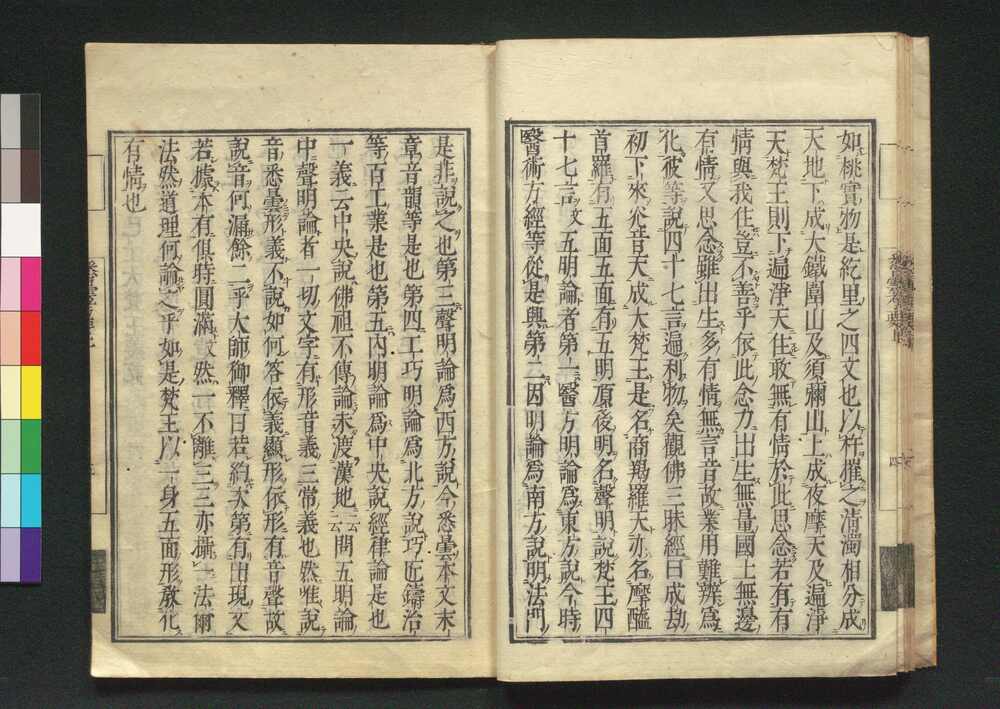 如桃實物是紇里之四文也以杵摧之淸濁相分成
天地下成大鐵圍山及須彌山上成夜摩天及遍淨
天梵王則下遍淨天住敢無有情於此思念若有有
情與我住豈不善乎依此念力出生無量國土無邊
有情又思念雖出生多有情無言音故業用難辨爲
化彼等說四十七言遍利物矣觀佛三昧經曰成劫
初下來光音天成大梵王是名商羯羅天亦名摩醯
首羅有五面五面有五明頂後明名聲明說梵王四
十七言文五明論者第一醫方明論爲東方說今時
醫術方經等從是興第二因明論爲南方說明法門
是非說之也第三聲明論爲西方說今悉曇本文末
章音韻等是也第四工巧明論爲北方說巧匠鑄冶
等百工業是也第五內明論爲中央說經律論是也
一義云中央說佛祖不傳論未渡漢地云云問五明論
中聲明論者一切文字有形音義三常義也然唯說
音悉曇形義不說如何答依義顯形依形有音聲故
說音何漏餘二乎大師御釋曰若約次第有出現文
若據本有俱時圓滿故然一不離三三亦攝一法爾
法然道理何論之乎如是梵王以一身五面形敎化
有情也